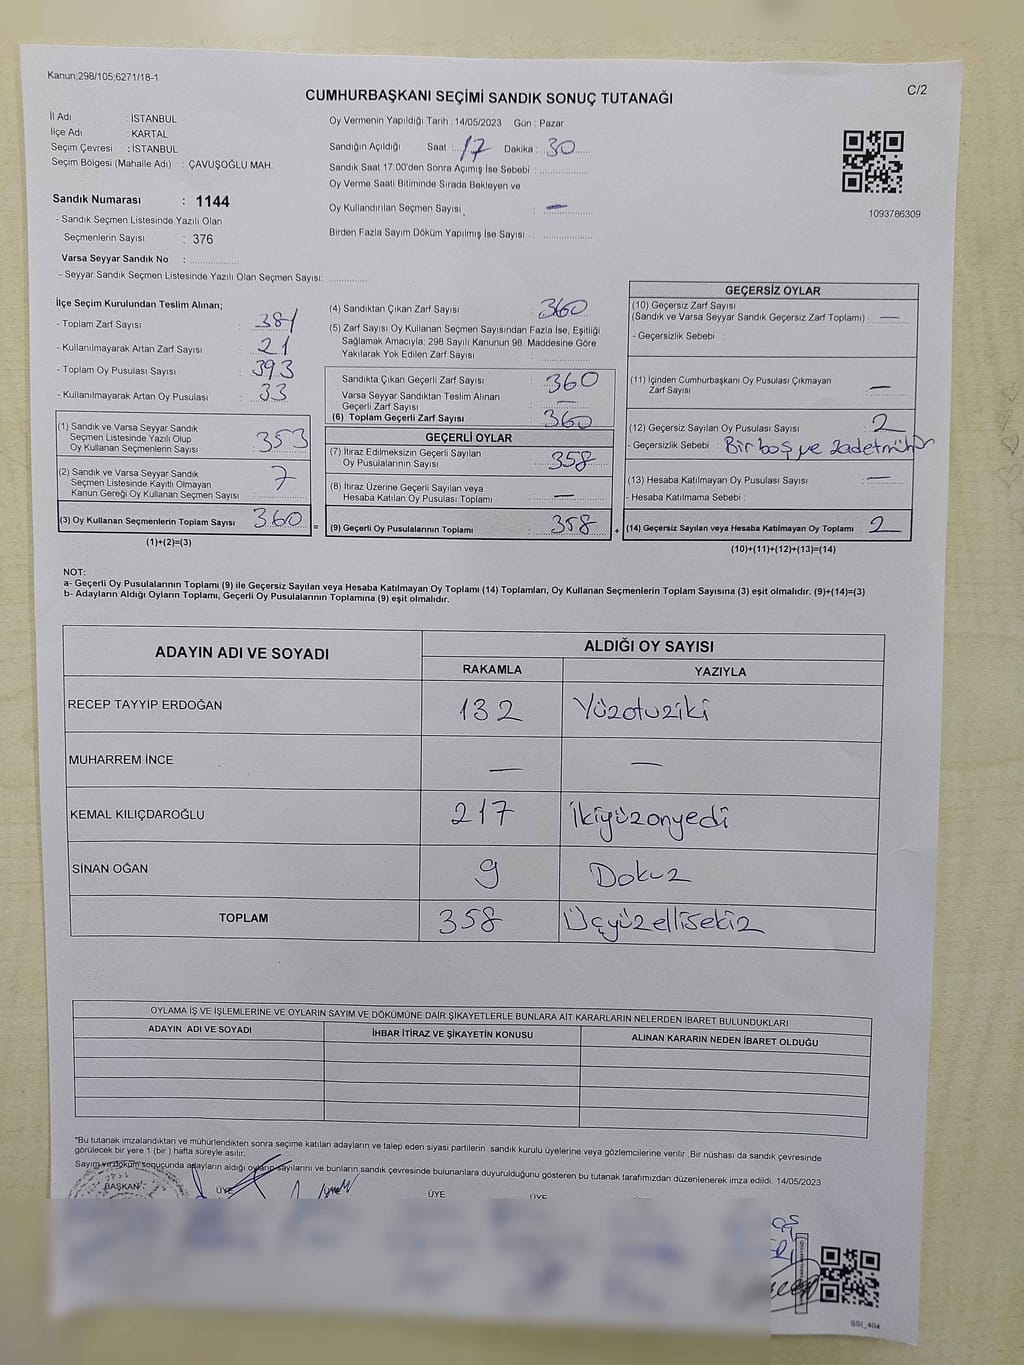 Kanun;298/105;6271/18-1
C/2
CUMHURBAŞKANI SEÇİMİ SANDIK SONUÇ TUTANAĞI
İl Adı : İSTANBUL
İlçe Adı : KARTAL
Seçim Çevresi : İSTANBUL
Seçim Bölgesi (Mahalle Adı) : ÇAVUŞOĞLU MAH.
Sandık Numarası : 1144
- Sandık Seçmen Listesinde Yazılı Olan
Seçmenlerin Sayısı : 376
Varsa Seyyar Sandık No :
- Seyyar Sandık Seçmen Listesinde Yazılı Olan Seçmen Sayısı:
Oy Vermenin Yapıldığı Tarih : 14/05/2023 Gün : Pazar
Sandığın Açıldığı Saat : 17 Dakika : 30
Sandık Saat 17:00'den Sonra Açımış İse Sebebi :
Oy Verme Saati Bitiminde Sırada Bekleyen ve
Oy Kullandırılan Seçmen Sayısı : —
Birden Fazla Sayım Döküm Yapılmış İse Sayısı :
1093786309
İlçe Seçim Kurulundan Teslim Alınan;
- Toplam Zarf Sayısı : 381
- Kullanılmayarak Artan Zarf Sayısı : 21
- Toplam Oy Pusulası Sayısı : 393
- Kullanılmayarak Artan Oy Pusulası : 33
(1) Sandık ve Varsa Seyyar Sandık
Seçmen Listesinde Yazılı Olup
Oy Kullanan Seçmenlerin Sayısı : 353
(2) Sandık ve Varsa Seyyar Sandık
Seçmen Listesinde Kayıtlı Olmayan
Kanun Gereği Oy Kullanan Seçmen Sayısı : 7
(3) Oy Kullanan Seçmenlerin Toplam Sayısı 360 =
(1)+(2)=(3)
(4) Sandıktan Çıkan Zarf Sayısı : 360
(5) Zarf Sayısı Oy Kullanan Seçmen Sayısından Fazla İse, Eşitliği
Sağlamak Amacıyla; 298 Sayılı Kanunun 98. Maddesine Göre
Yakılarak Yok Edilen Zarf Sayısı :
Sandıkta Çıkan Geçerli Zarf Sayısı : 360
Varsa Seyyar Sandıktan Teslim Alınan
Geçerli Zarf Sayısı : —
(6) Toplam Geçerli Zarf Sayısı : 360
GEÇERLİ OYLAR
(7) İtiraz Edilmeksizin Geçerli Sayılan
Oy Pusulalarının Sayısı : 358
(8) İtiraz Üzerine Geçerli Sayılan veya
Hesaba Katılan Oy Pusulası Toplamı : —
(9) Geçerli Oy Pusulalarının Toplamı : 358 +
GEÇERSİZ OYLAR
(10) Geçersiz Zarf Sayısı
(Sandık ve Varsa Seyyar Sandık Geçersiz Zarf Toplamı) : —
- Geçersizlik Sebebi :
(11) İçinden Cumhurbaşkanı Oy Pusulası Çıkmayan
Zarf Sayısı : —
(12) Geçersiz Sayılan Oy Pusulası Sayısı : 2
- Geçersizlik Sebebi : Bir boş ve 2adetmühür
(13) Hesaba Katılmayan Oy Pusulası Sayısı : —
- Hesaba Katılmama Sebebi :
(14) Geçersiz Sayılan veya Hesaba Katılmayan Oy Toplamı : 2
(10)+(11)+(12)+(13)=(14)
NOT:
a- Geçerli Oy Pusulalarının Toplamı (9) ile Geçersiz Sayılan veya Hesaba Katılmayan Oy Toplamı (14) Toplamları, Oy Kullanan Seçmenlerin Toplam Sayısına (3) eşit olmalıdır. (9)+(14)=(3)
b- Adayların Aldığı Oyların Toplamı, Geçerli Oy Pusulalarının Toplamına (9) eşit olmalıdır.
ADAYIN ADI VE SOYADI ALDIĞI OY SAYISI
RAKAMLA YAZIYLA
RECEP TAYYİP ERDOĞAN 132 Yüzotuziki
MUHARREM İNCE — —
KEMAL KILIÇDAROĞLU 217 İkiyüzonyedi
SİNAN OĞAN 9 Dokuz
TOPLAM 358 Üçyüzellisekiz
OYLAMA İŞ VE İŞLEMLERİNE VE OYLARIN SAYIM VE DÖKÜMÜNE DAİR ŞİKAYETLERLE BUNLARA AİT KARARLARIN NELERDEN İBARET BULUNDUKLARI
ADAYIN ADI VE SOYADI İHBAR İTİRAZ VE ŞİKAYETİN KONUSU ALINAN KARARIN NEDEN İBARET OLDUĞU
*Bu tutanak imzalandıktan ve mühürlendikten sonra seçime katılan adayların ve talep eden siyasi partilerin sandık kurulu üyelerine veya gözlemcilerine verilir .Bir nüshası da sandık çevresinde
görülecek bir yere 1 (bir ) hafta süreyle asılır.
Sayım ve döküm sonucunda adayların aldığı oyların sayılarını ve bunların sandık çevresinde bulunanlara duyurulduğunu gösteren bu tutanak tarafımızdan düzenlenerek imza edildi. 14/05/2023
BAŞKAN ÜYE ÜYE ÜYE
SSI_404